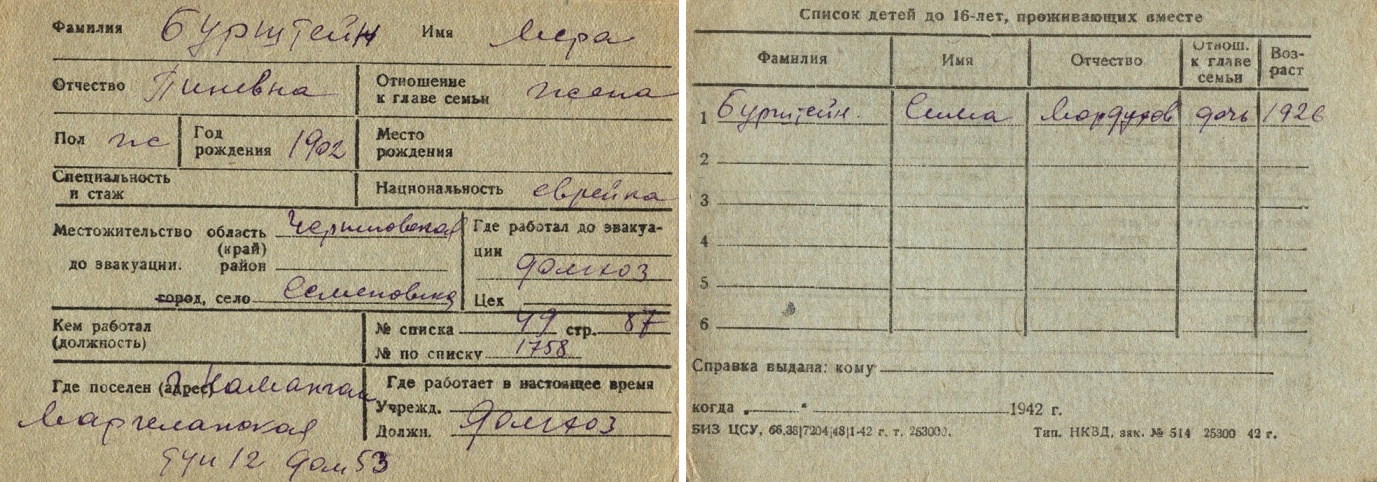 Фамилия Бурштейн Имя Мера
Отчество Пиневна Отношение к главе семьи жена
Пол ж Год рождения 1902 Место рождения
Специальность и стаж Национальность еврейка
Местожительство до эвакуации. область (край) Черниговская
район
город, село Семеновка
Где работал до эвакуации домхоз
Цех
Кем работал (должность)
№ списка 49 стр. 87
№ по списку 1758
Где поселен (адрес) г Наманган
Маргеланская
туп 12 дом 53
Где работает в настоящее время
Учрежд.
Должн. домхоз
Список детей до 16-лет, проживающих вместе
Фамилия Имя Отчество Отнош. к главе семьи Возраст
1 Бурштейн. Сима Мордухов дочь 1926
2
3
4
5
6
Справка выдана: кому
когда „ “ 1942 г.
БИЗ ЦСУ, 66,38|7204|48|1-42 г. т. 253000. Тип. НКВД, зак. № 514 25300 42 г.